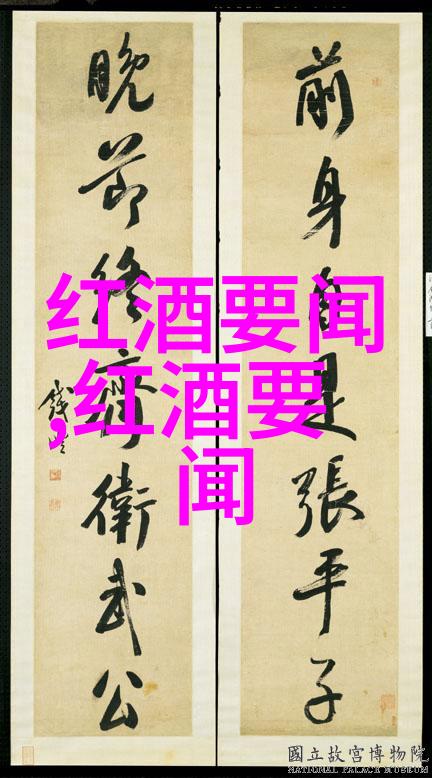 前身自是張平子
晚節終齊衛武公
錢灃
红酒要闻
,红酒要
闻
國立故宮博物院
NATIONAL PALACE MUSEUM